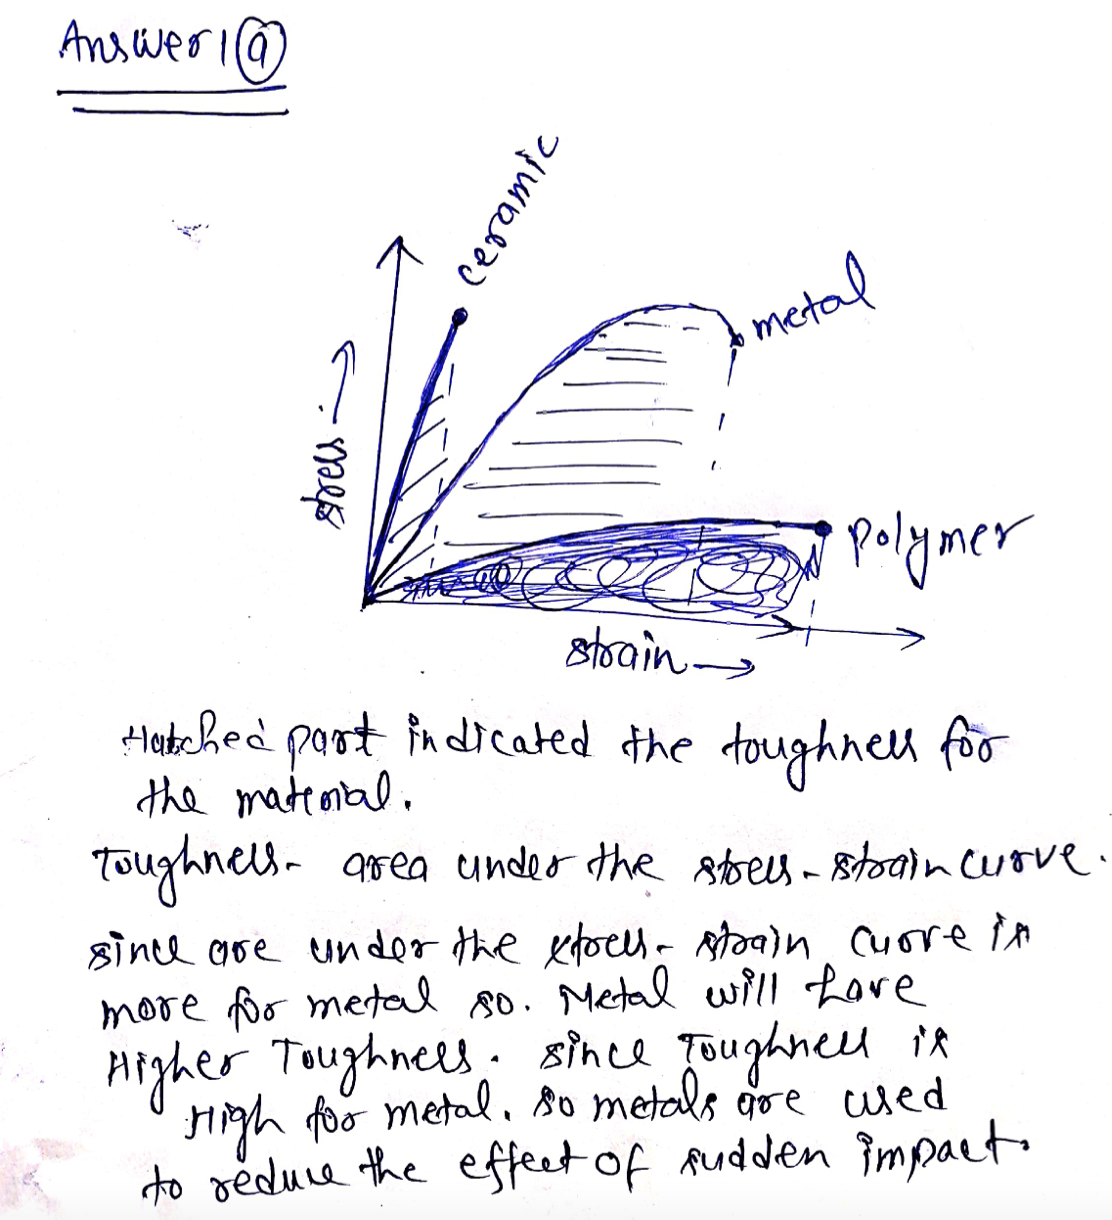 Answer 1 (a)
ceramic
metal
stress →
polymer
strain →
Hatched part indicated the toughness for
the material.
Toughness - area under the stress - strain curve.
since are under the stress - strain curve is
more for metal so. Metal will have
Higher Toughness. since Toughness is
High for metal. so metals are used
to reduce the effect of sudden impact.